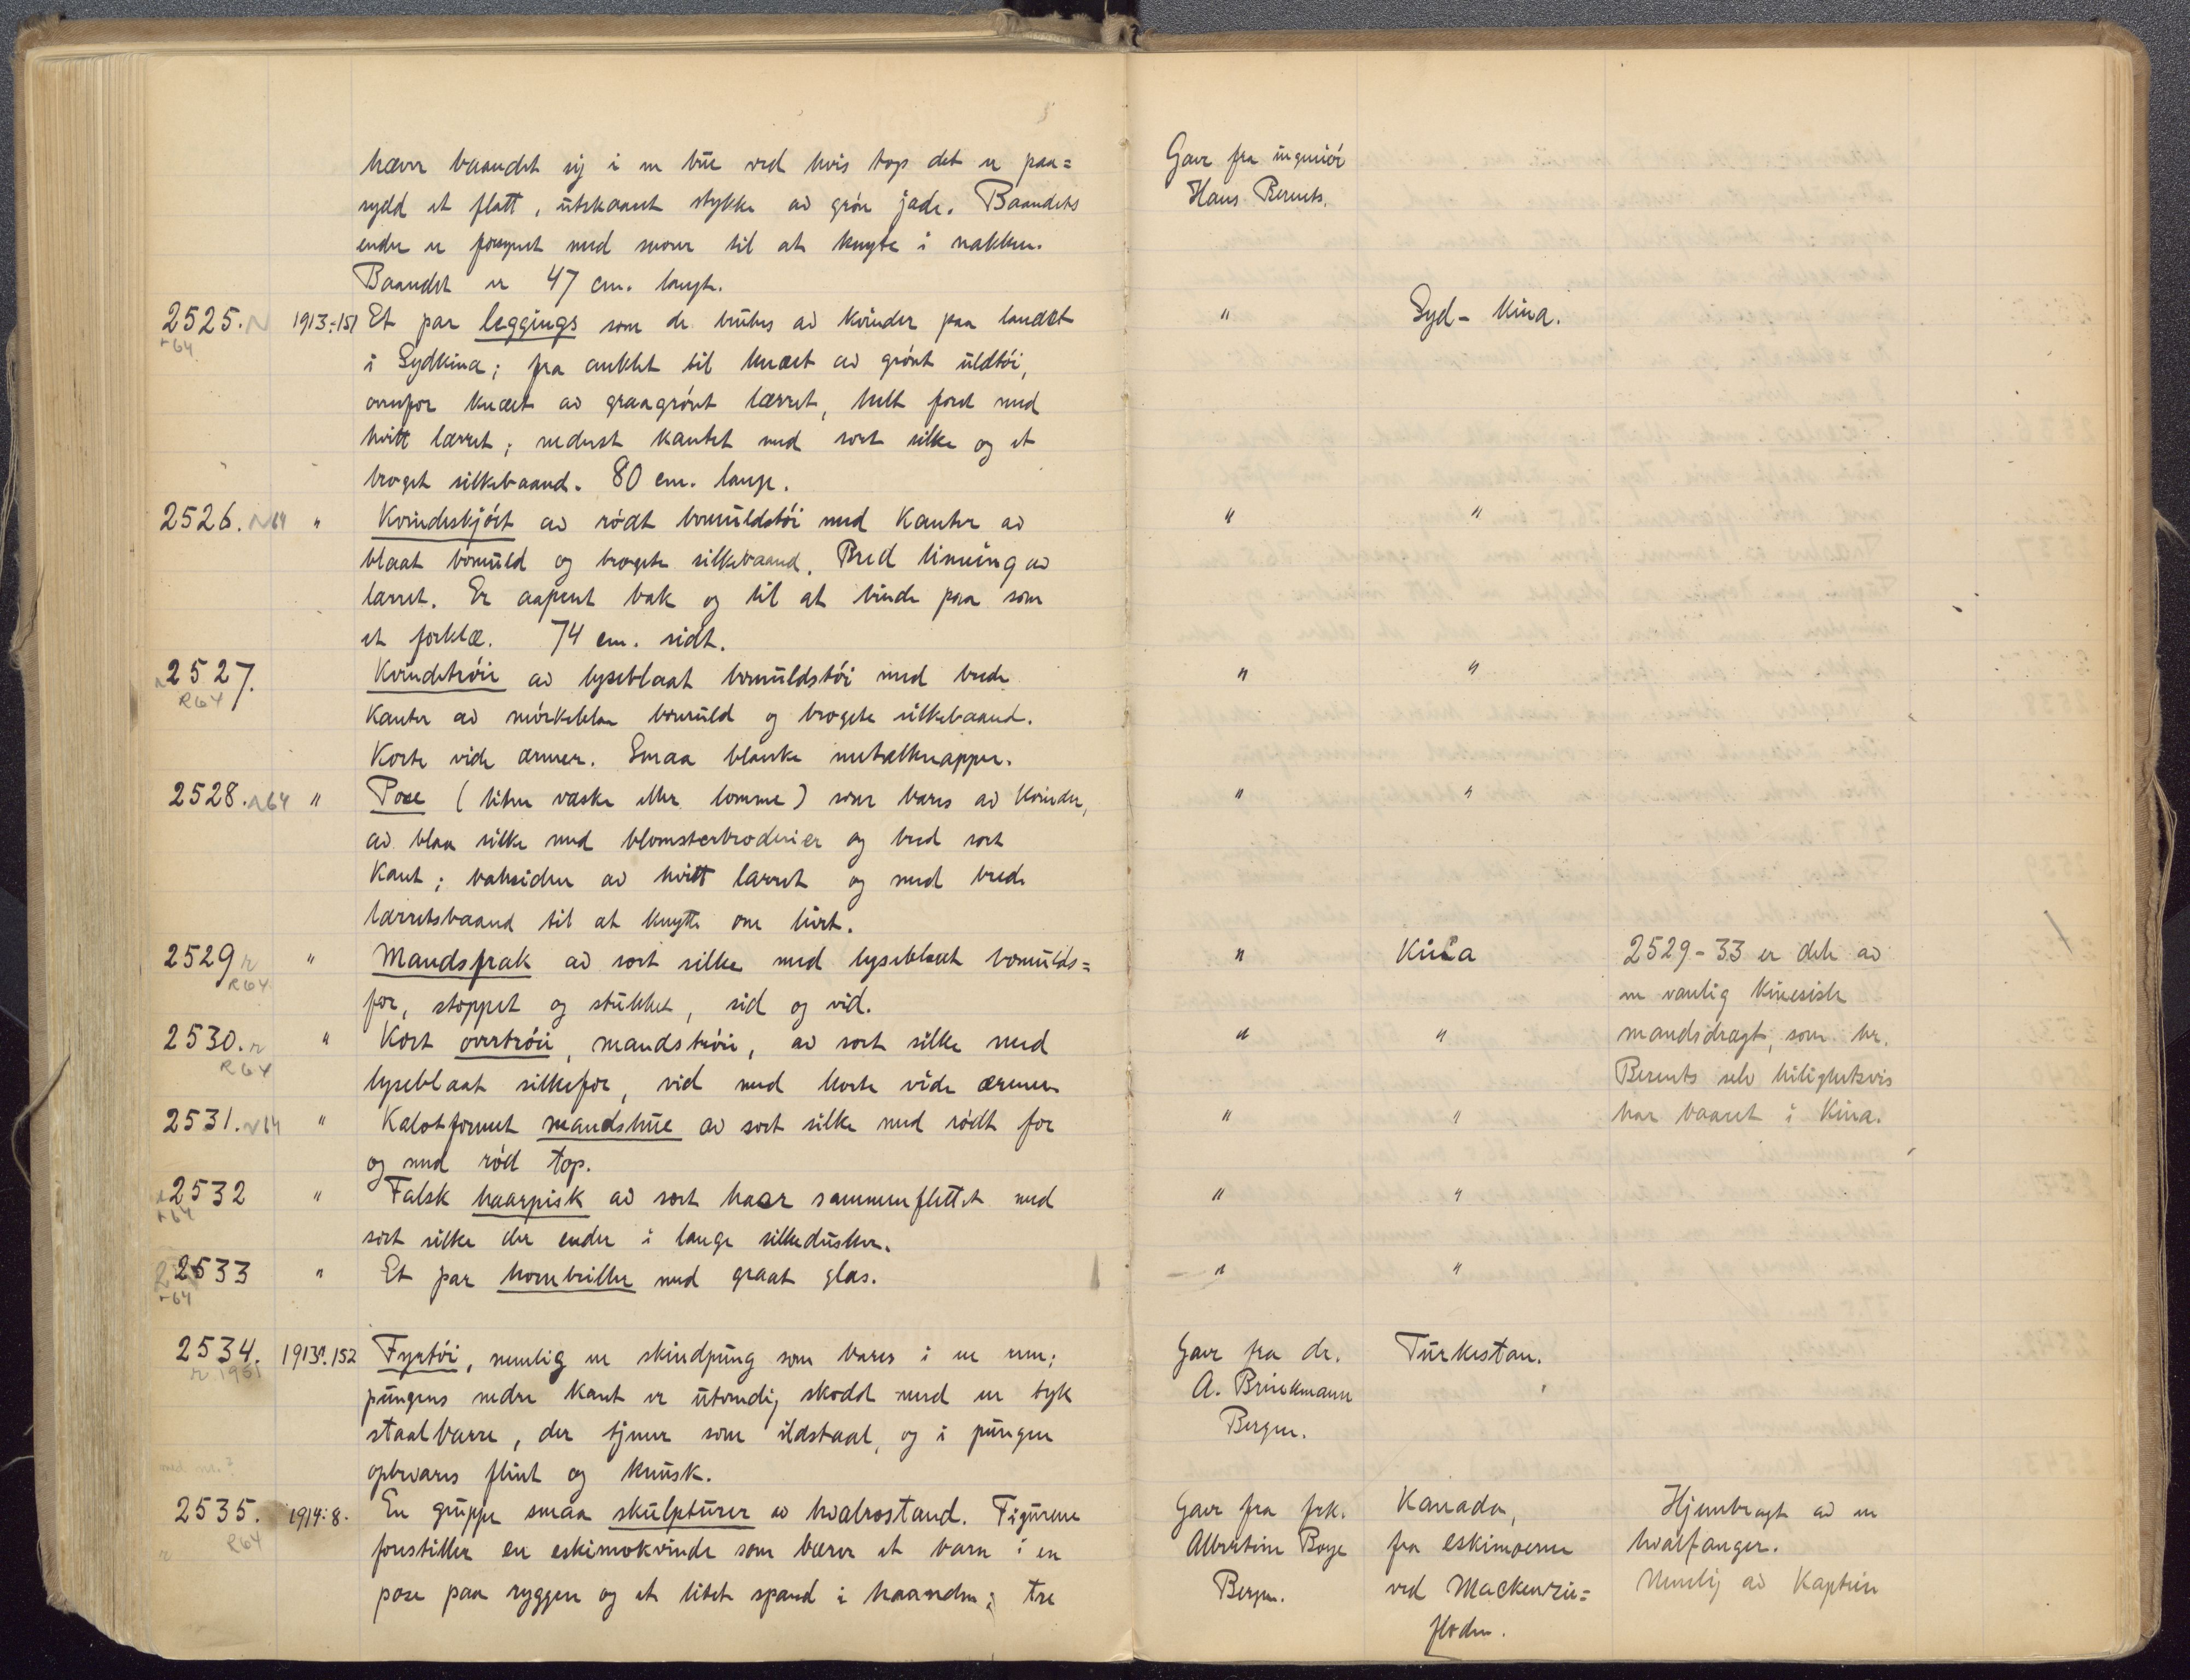 hæver baandet sig i en bue ved hvis top det er paa=
sydd et flatt, utskaaret stykke av grøn jade. Baandets
ender er forsynet med snorer til at knyte i nakken.
Baandet er 47 cm. langt.
Gave fra ingeniør
Hans Berents.
2525. N 1913:151 Et par leggings som de brukes av kvinder paa landet " Syd-Kina.
r64
i Sydkina; fra anklet til knæet av grønt uldtøi,
ovenfor knæet av graagrønt lærret, helt foret med
hvitt lærret; nederst kantet med sort silke og et
broget silkebaand. 80 cm. lange.
2526. N64 " Kvindeskjørt av rødt bomuldstøi med kanter av " "
blaat bomuld og brogete silkebaand. Bred linning av
lærret. Er aapent bak og til at binde paa som
et forklæ. 74 cm. sidt.
2527. Kvindetrøie av lyseblaat bomuldstøi med brede " "
R64
kanter av mørkeblaa bomuld og brogete silkebaand.
Korte vide ærmer. Smaa blanke metalknapper.
2528. N64 " Pose (liten væske eller lomme) som bæres av kvinder, " "
av blaa silke med blomsterbroderier og bred sort
kant; baksiden av hvitt lærret og med brede
lærretsbaand til at knytte om livet.
2529 r " Mandsfrak av sort silke med lyseblaat bomulds= " Kina 2529-33 er dele av
R64
for, stoppet og stukket, sid og vid. en vanlig kinesisk
2530. r " Kort overtrøie, mandstrøie, av sort silke med " " mandsdragt, som hr.
R64
lyseblaat silkefor, vid med korte vide ærmer Berents selv leilighetsvis
2531. N64 " Kalotformet mandshue av sort silke med rødt for " " har baaret i Kina.
og med rød top.
2532 " Falsk haarpisk av sort haar sammenflettet med " "
r64
sort silke der ender i lange silkedusker.
2533 " Et par hornbriller med graat glas. " "
r64
2534. 1913:152 Fyrtøi, nemlig en skindpung som bæres i en rem; Gave fra dr. Turkestan.
r 1961
pungens nedre kant er utvendig skodd med en tyk A. Brinkmann
staalbarre, der tjener som ildstaal, og i pungen Bergen.
opbevares flint og knusk.
2535. 1914:8. En gruppe smaa skulpturer av hvalrostand. Figurene Gave fra frk. Kanada, Hjembragt av en
R64
forestiller en eskimokvinde som bærer et barn i en Albertine Boye fra eskimoerne hvalfanger.
pose paa ryggen og et litet spand i haanden; tre Bergen. ved Mackenzie= Nemlig av Kaptein
floden.